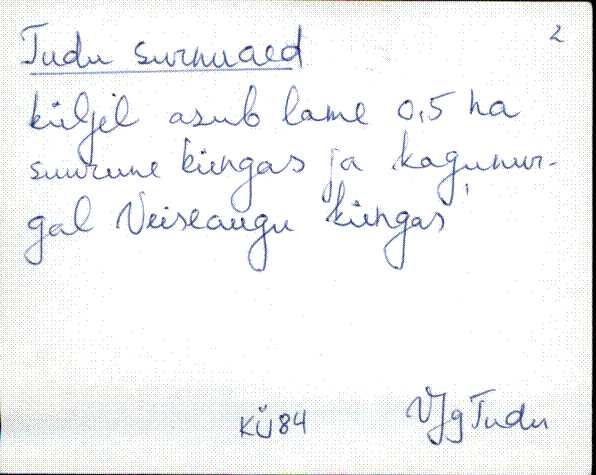 2
Tudu surnuaed
küljel asub lame 0,5 ha
suurune küngas ja kagunur-
gal Veiseaugu küngas
KÜ84 VJg Tudu